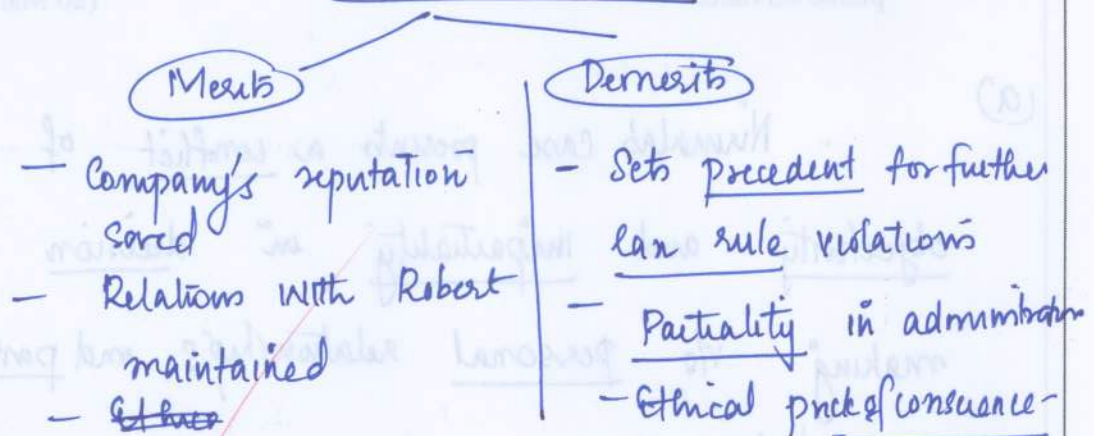 Merits
- Company's reputation
saved
- Relations with Robert
maintained
Demerits
- Sets precedent for further
lax rule violations
- Partiality in administration
- Ethical prick of consciance-
(a)